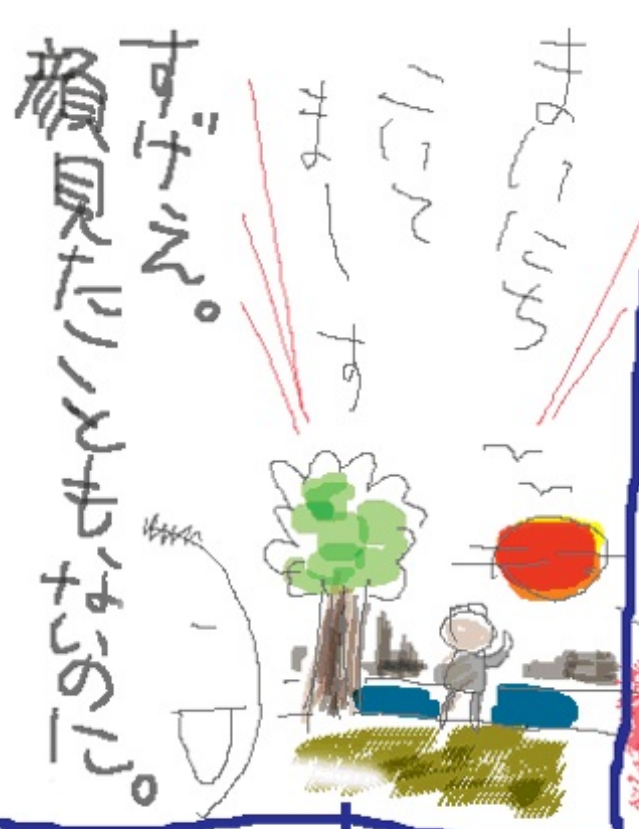 まいにち
みにて
まーす
すげえ。
顔見たこともないのに。